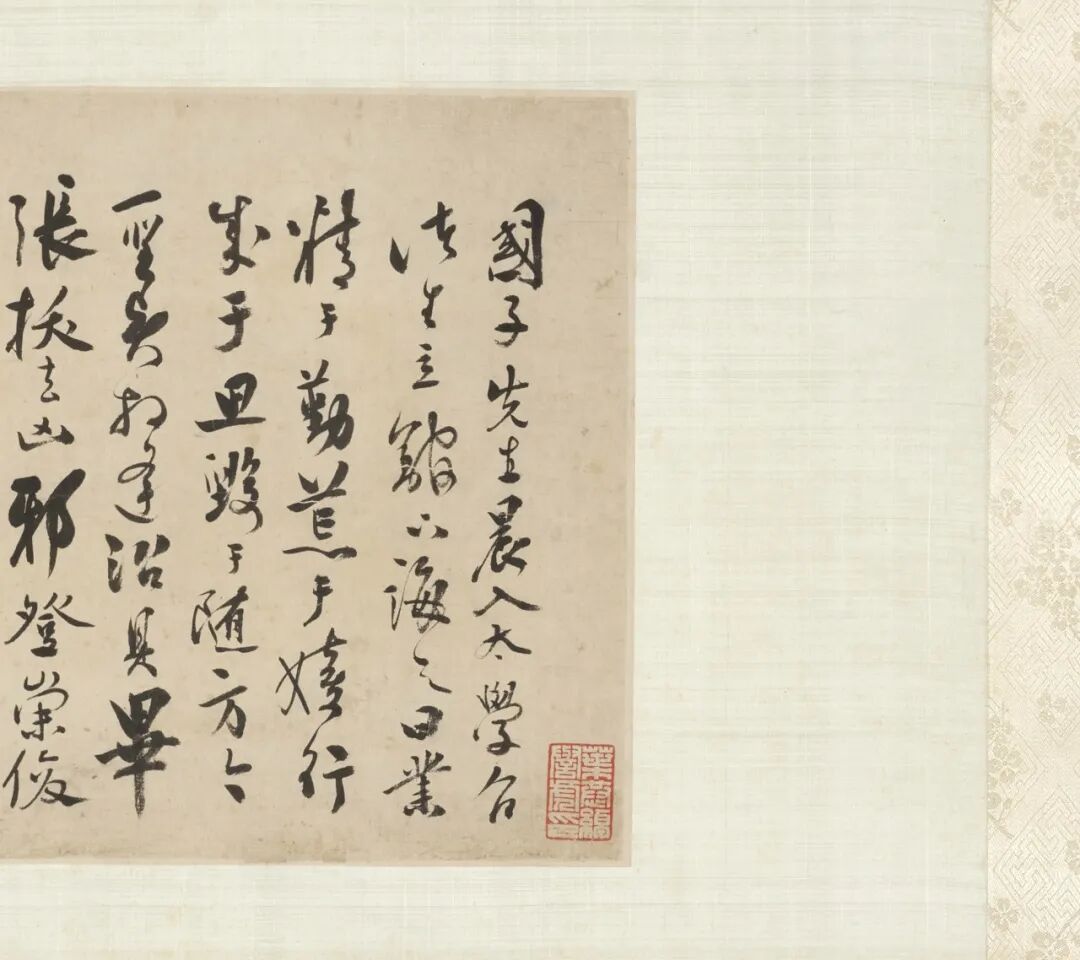 國子先生晨入太學召
諸生立館下誨之曰業
精于勤荒于嬉行
成于思毀于随方今
聖賢相逢治具畢
張拔去凶邪登崇俊
葉恭綽
譽虎印